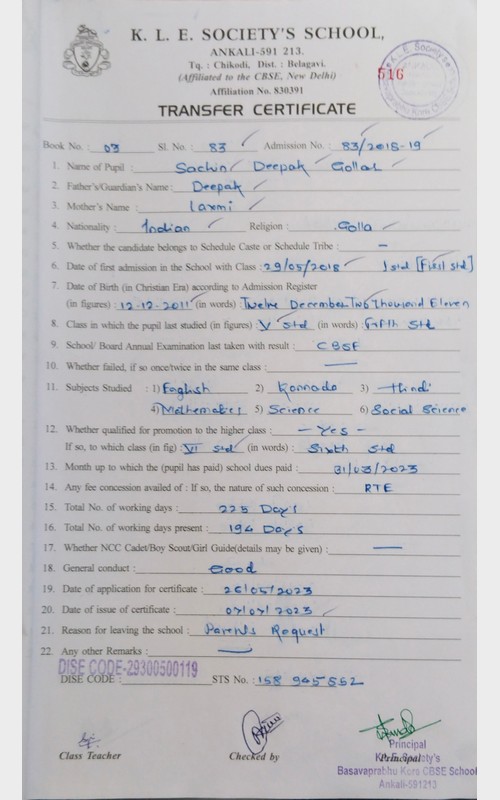 K. L. E. SOCIETY'S SCHOOL,
ANKALI-591 213.
Tq. : Chikodi, Dist. : Belagavi.
(Affiliated to the CBSE, New Delhi)
Affiliation No. 830391
516
TRANSFER CERTIFICATE
Book No. : 03 Sl. No. : 83 Admission No. : 83/2018-19
1. Name of Pupil : Sachin Deepak Gollar
2. Father's/Guardian's Name : Deepak
3. Mother's Name : Laxmi
4. Nationality : Indian Religion : Golla
5. Whether the candidate belongs to Schedule Caste or Schedule Tribe : —
6. Date of first admission in the School with Class : 29/05/2018 1std [First std]
7. Date of Birth (in Christian Era) according to Admission Register
(in figures) : 12-12-2011 (in words) : Twelve December Two Thousand Eleven
8. Class in which the pupil last studied (in figures) V std (in words) : Fifth Std
9. School/ Board Annual Examination last taken with result : CBSE
10. Whether failed, if so once/twice in the same class : —
11. Subjects Studied : 1) English 2) Kannada 3) Hindi
4) Mathematics 5) Science 6) Social Science
12. Whether qualified for promotion to the higher class : - Yes -
If so, to which class (in fig) : VI std (in words) : Sixth Std
13. Month up to which the (pupil has paid) school dues paid : 31/03/2023
14. Any fee concession availed of : If so, the nature of such concession : RTE
15. Total No. of working days : 225 Days
16. Total No. of working days present : 194 Days
17. Whether NCC Cadet/Boy Scout/Girl Guide(details may be given) : —
18. General conduct : Good
19. Date of application for certificate : 26/05/2023
20. Date of issue of certificate : 07/07/2023
21. Reason for leaving the school : Parents Request
22. Any other Remarks : —
DISE CODE-29300500119
DISE CODE : STS No. : 158 945552
Class Teacher Checked by Principal
Principal
K.L.E. Society's
Basavaprabhu Kore CBSE School
Ankali-591213